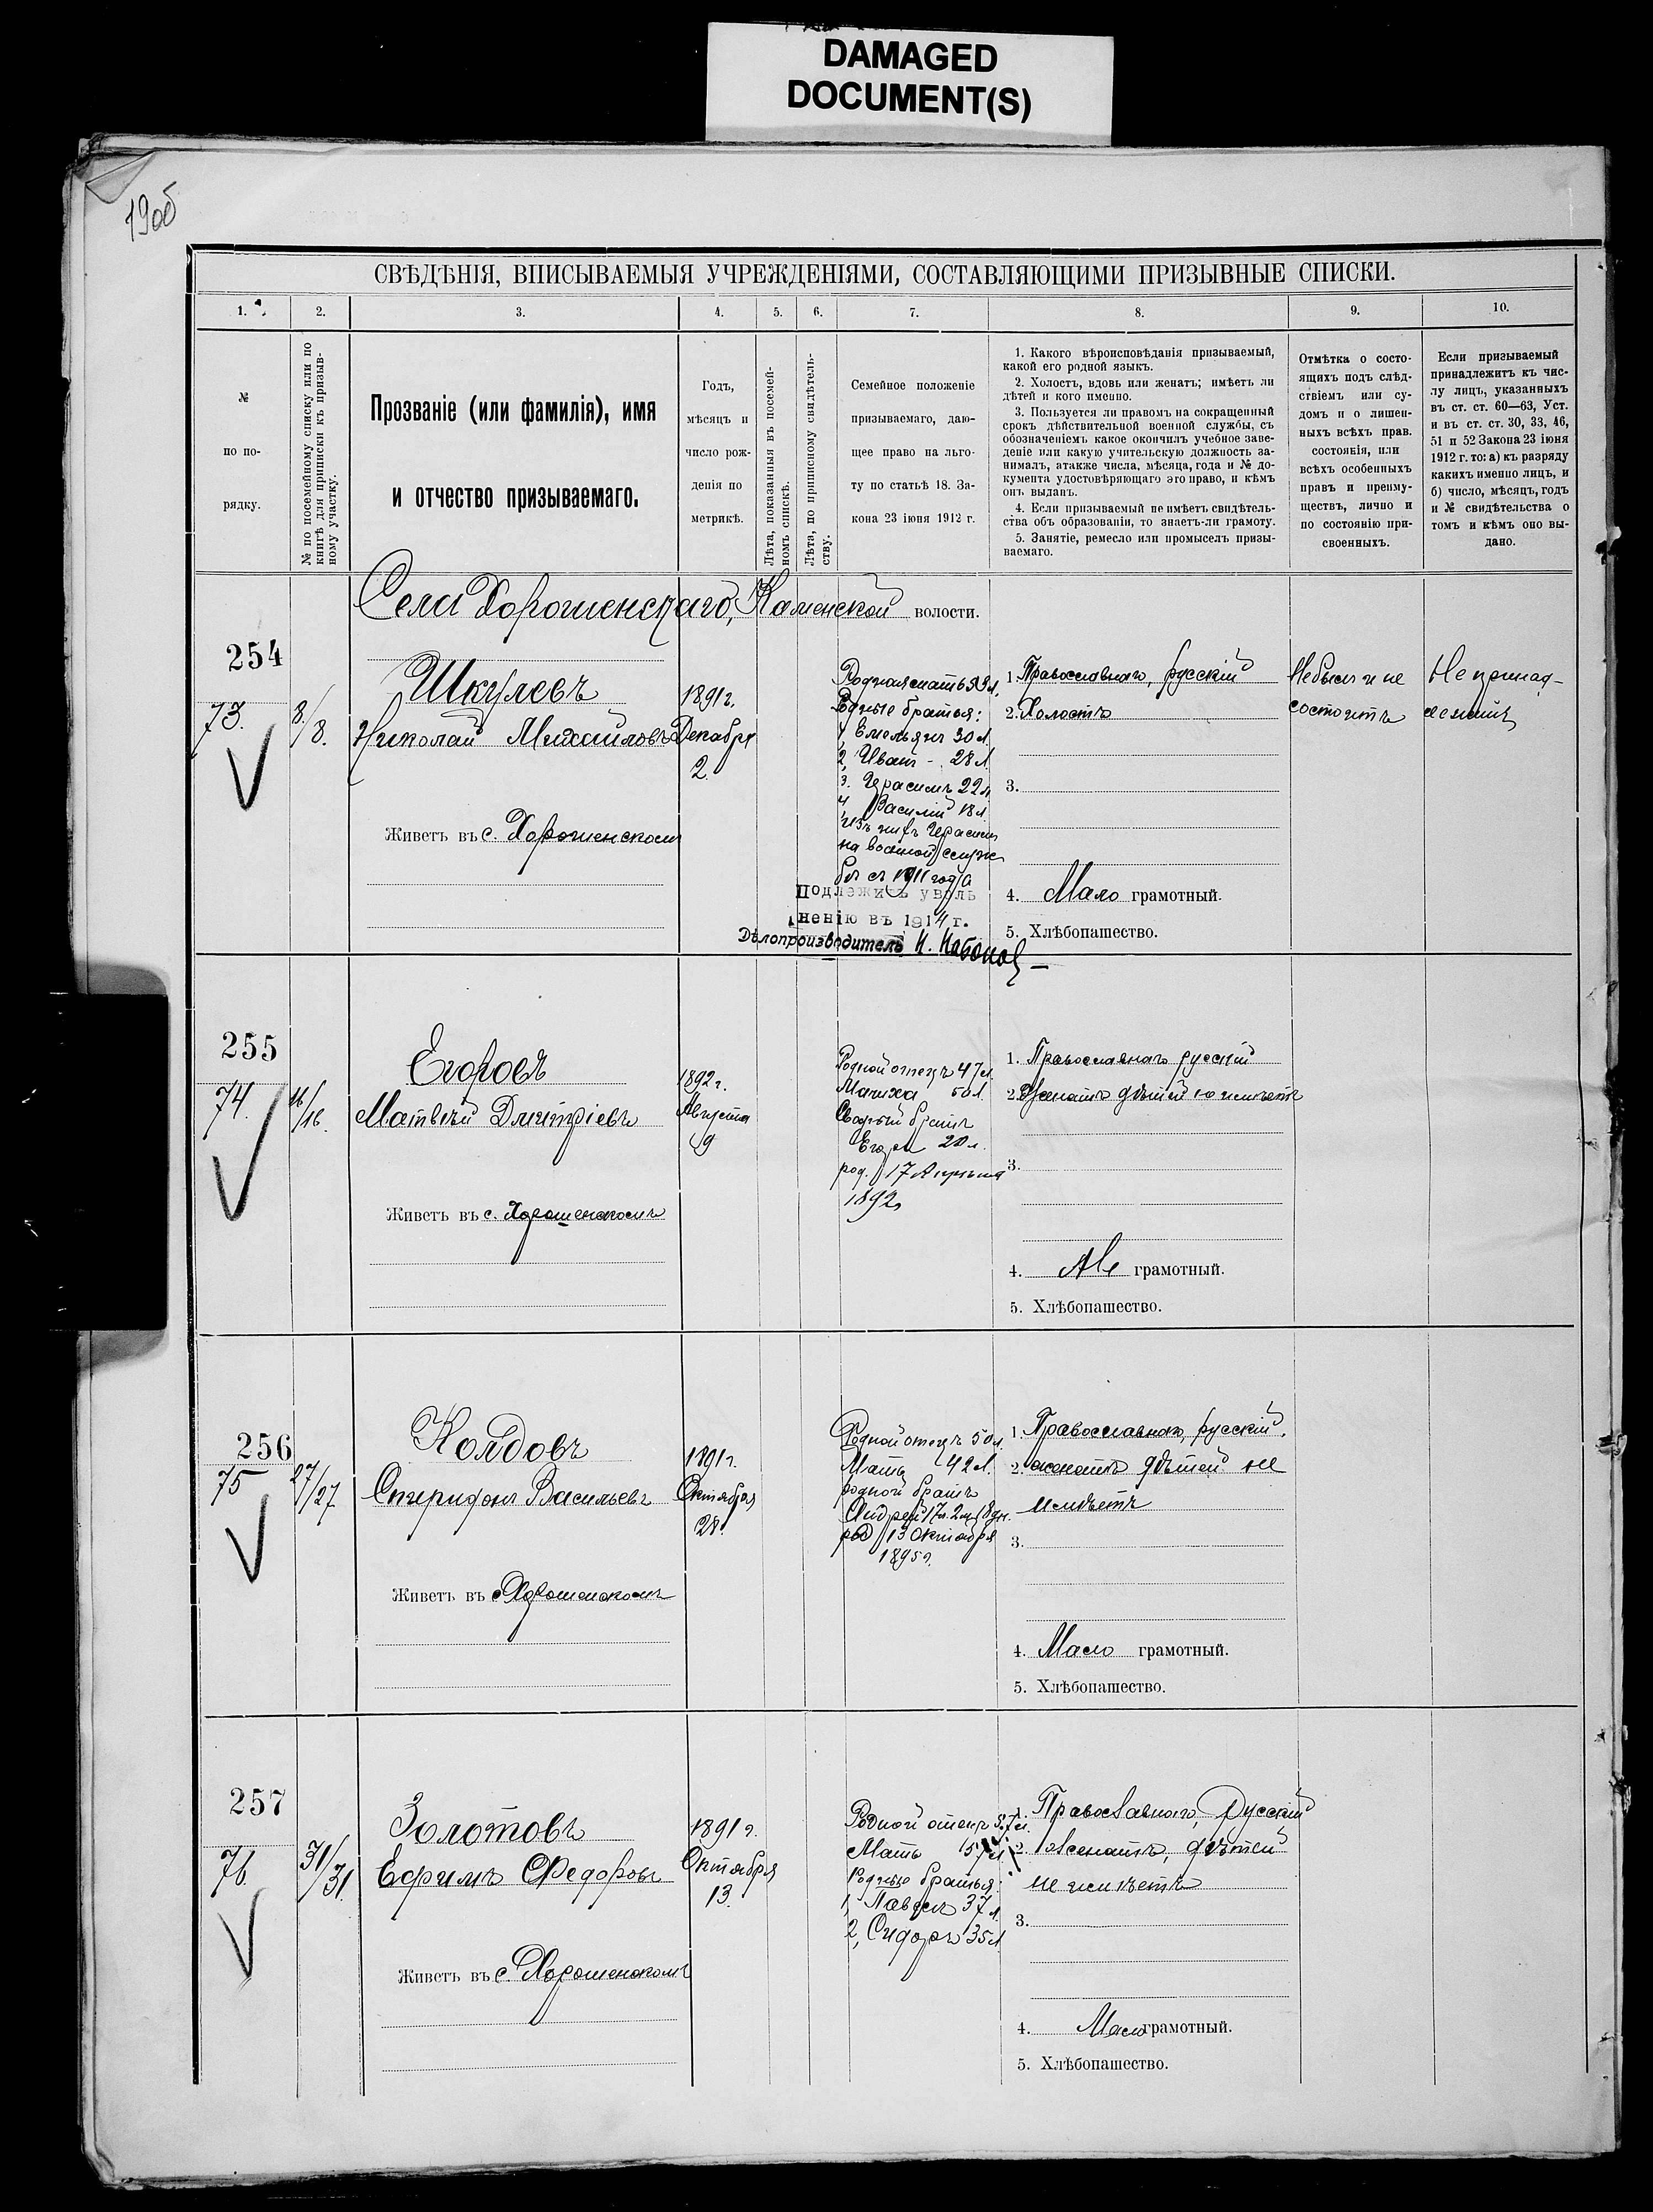 DAMAGED
DOCUMENT(S)
190об
СВѢДѢНІЯ, ВПИСЫВАЕМЫЯ УЧРЕЖДЕНІЯМИ, СОСТАВЛЯЮЩИМИ ПРИЗЫВНЫЕ СПИСКИ.
1. 2. 3. 4. 5. 6. 7. 8. 9. 10.
№
по по-
рядку.
№ по посемейному списку или по
книгѣ для приписки къ призыв-
ному участку.
Прозваніе (или фамилія), имя
и отчество призываемаго.
Годъ,
мѣсяцъ и
число рож-
денія по
метрикѣ.
Лѣта, показанныя въ посемей-
номъ спискѣ.
Лѣта, по приписному свидѣтель-
ству.
Семейное положеніе
призываемаго, даю-
щее право на льго-
ту по статьѣ 18. За-
кона 23 іюня 1912 г.
1. Какого вѣроисповѣданія призываемый,
какой его родной языкъ.
2. Холостъ, вдовъ или женатъ; имѣетъ ли
дѣтей и кого именно.
3. Пользуется ли правомъ на сокращенный
срокъ дѣйствительной военной службы, съ
обозначеніемъ какое окончилъ учебное заве-
деніе или какую учительскую должность за-
нималъ, атакже числа, мѣсяца, года и № до-
кумента удостовѣряющаго это право, и кѣмъ
онъ выданъ.
4. Если призываемый не имѣетъ свидѣтель-
ства объ образованіи, то знаетъ-ли грамоту.
5. Занятіе, ремесло или промыселъ призы-
ваемаго.
Отмѣтка о состо-
ящихъ подъ слѣд-
ствіемъ или су-
домъ и о лишен-
ныхъ всѣхъ прав.
состоянія, или
всѣхъ особенныхъ
правъ и преиму-
ществъ, лично и
по состоянію при-
своенныхъ.
Если призываемый
принадлежитъ къ чис-
лу лицъ, указанныхъ
въ ст. ст. 60—63, Уст.
и въ ст. ст. 30, 33, 46,
51 и 52 Закона 23 іюня
1912 г. то: а) къ разряду
какихъ именно лицъ, и
б) число, мѣсяцъ, годъ
и № свидѣтельства о
томъ и кѣмъ оно вы-
дано.
Села Хорошенскаго, Каменской волости.
254
73.
8/8.
Шкулевъ
Николай Михайловъ
Живетъ въ с. Хорошенскомъ
1891 г.
Декабря
2.
Родная мать 59 л.
Родные братья:
1, Емельянъ 30 л.
2, Иванъ - 28 л.
3. Герасимъ 22 л.
4 Василій 18 л.
Изъ нихъ Герасим
на военной служ
бѣ съ 1911 года
Подлежитъ уволь
ненію въ 1914 г.
Дѣлопроизводитель
1. Православнаго, русскій
2. Холостъ
3.
4. Мало грамотный.
5. Хлѣбопашество.
Не былъ и не
состоитъ
Не принад-
лежитъ
255
74.
16/16.
Егоровъ
Матвѣй Дмитріевъ
Живетъ въ с. Хорошенскомъ
1892 г.
Августа
9
Родной отецъ 47 л.
Мачиха 50 л.
Сводный братъ
Егоръ 20 л.
род. 17 Апрѣля
1892
1. Православнаго русскій
2. Женатъ дѣтей не имѣетъ
3.
4. Не грамотный.
5. Хлѣбопашество.
256
75
27/27
Колдовъ
Спиридонъ Васильевъ
Живетъ въ с. Хорошенскомъ
1891 г.
Октября
28.
Родной отецъ 50 л.
Мать 42 л.
родной братъ
Андрей 17 л. 2 м. 18 дн.
род 13 Октября
1895 г.
1. Православнаго, русскій.
2. женатъ дѣтей не
имѣетъ
3.
4. Мало грамотный.
5. Хлѣбопашество.
257
76
31/31
Золотовъ
Ефимъ Федоровъ
Живетъ въ с. Хорошенскомъ
1891 г.
Октября
13.
Родной отецъ
Мать
Родные братья:
1, Павелъ 37 л.
2, Сидоръ 35 л.
Православнаго, Русскій
2. Женатъ, дѣтей
не имѣетъ
3.
4. Мало грамотный.
5. Хлѣбопашество.